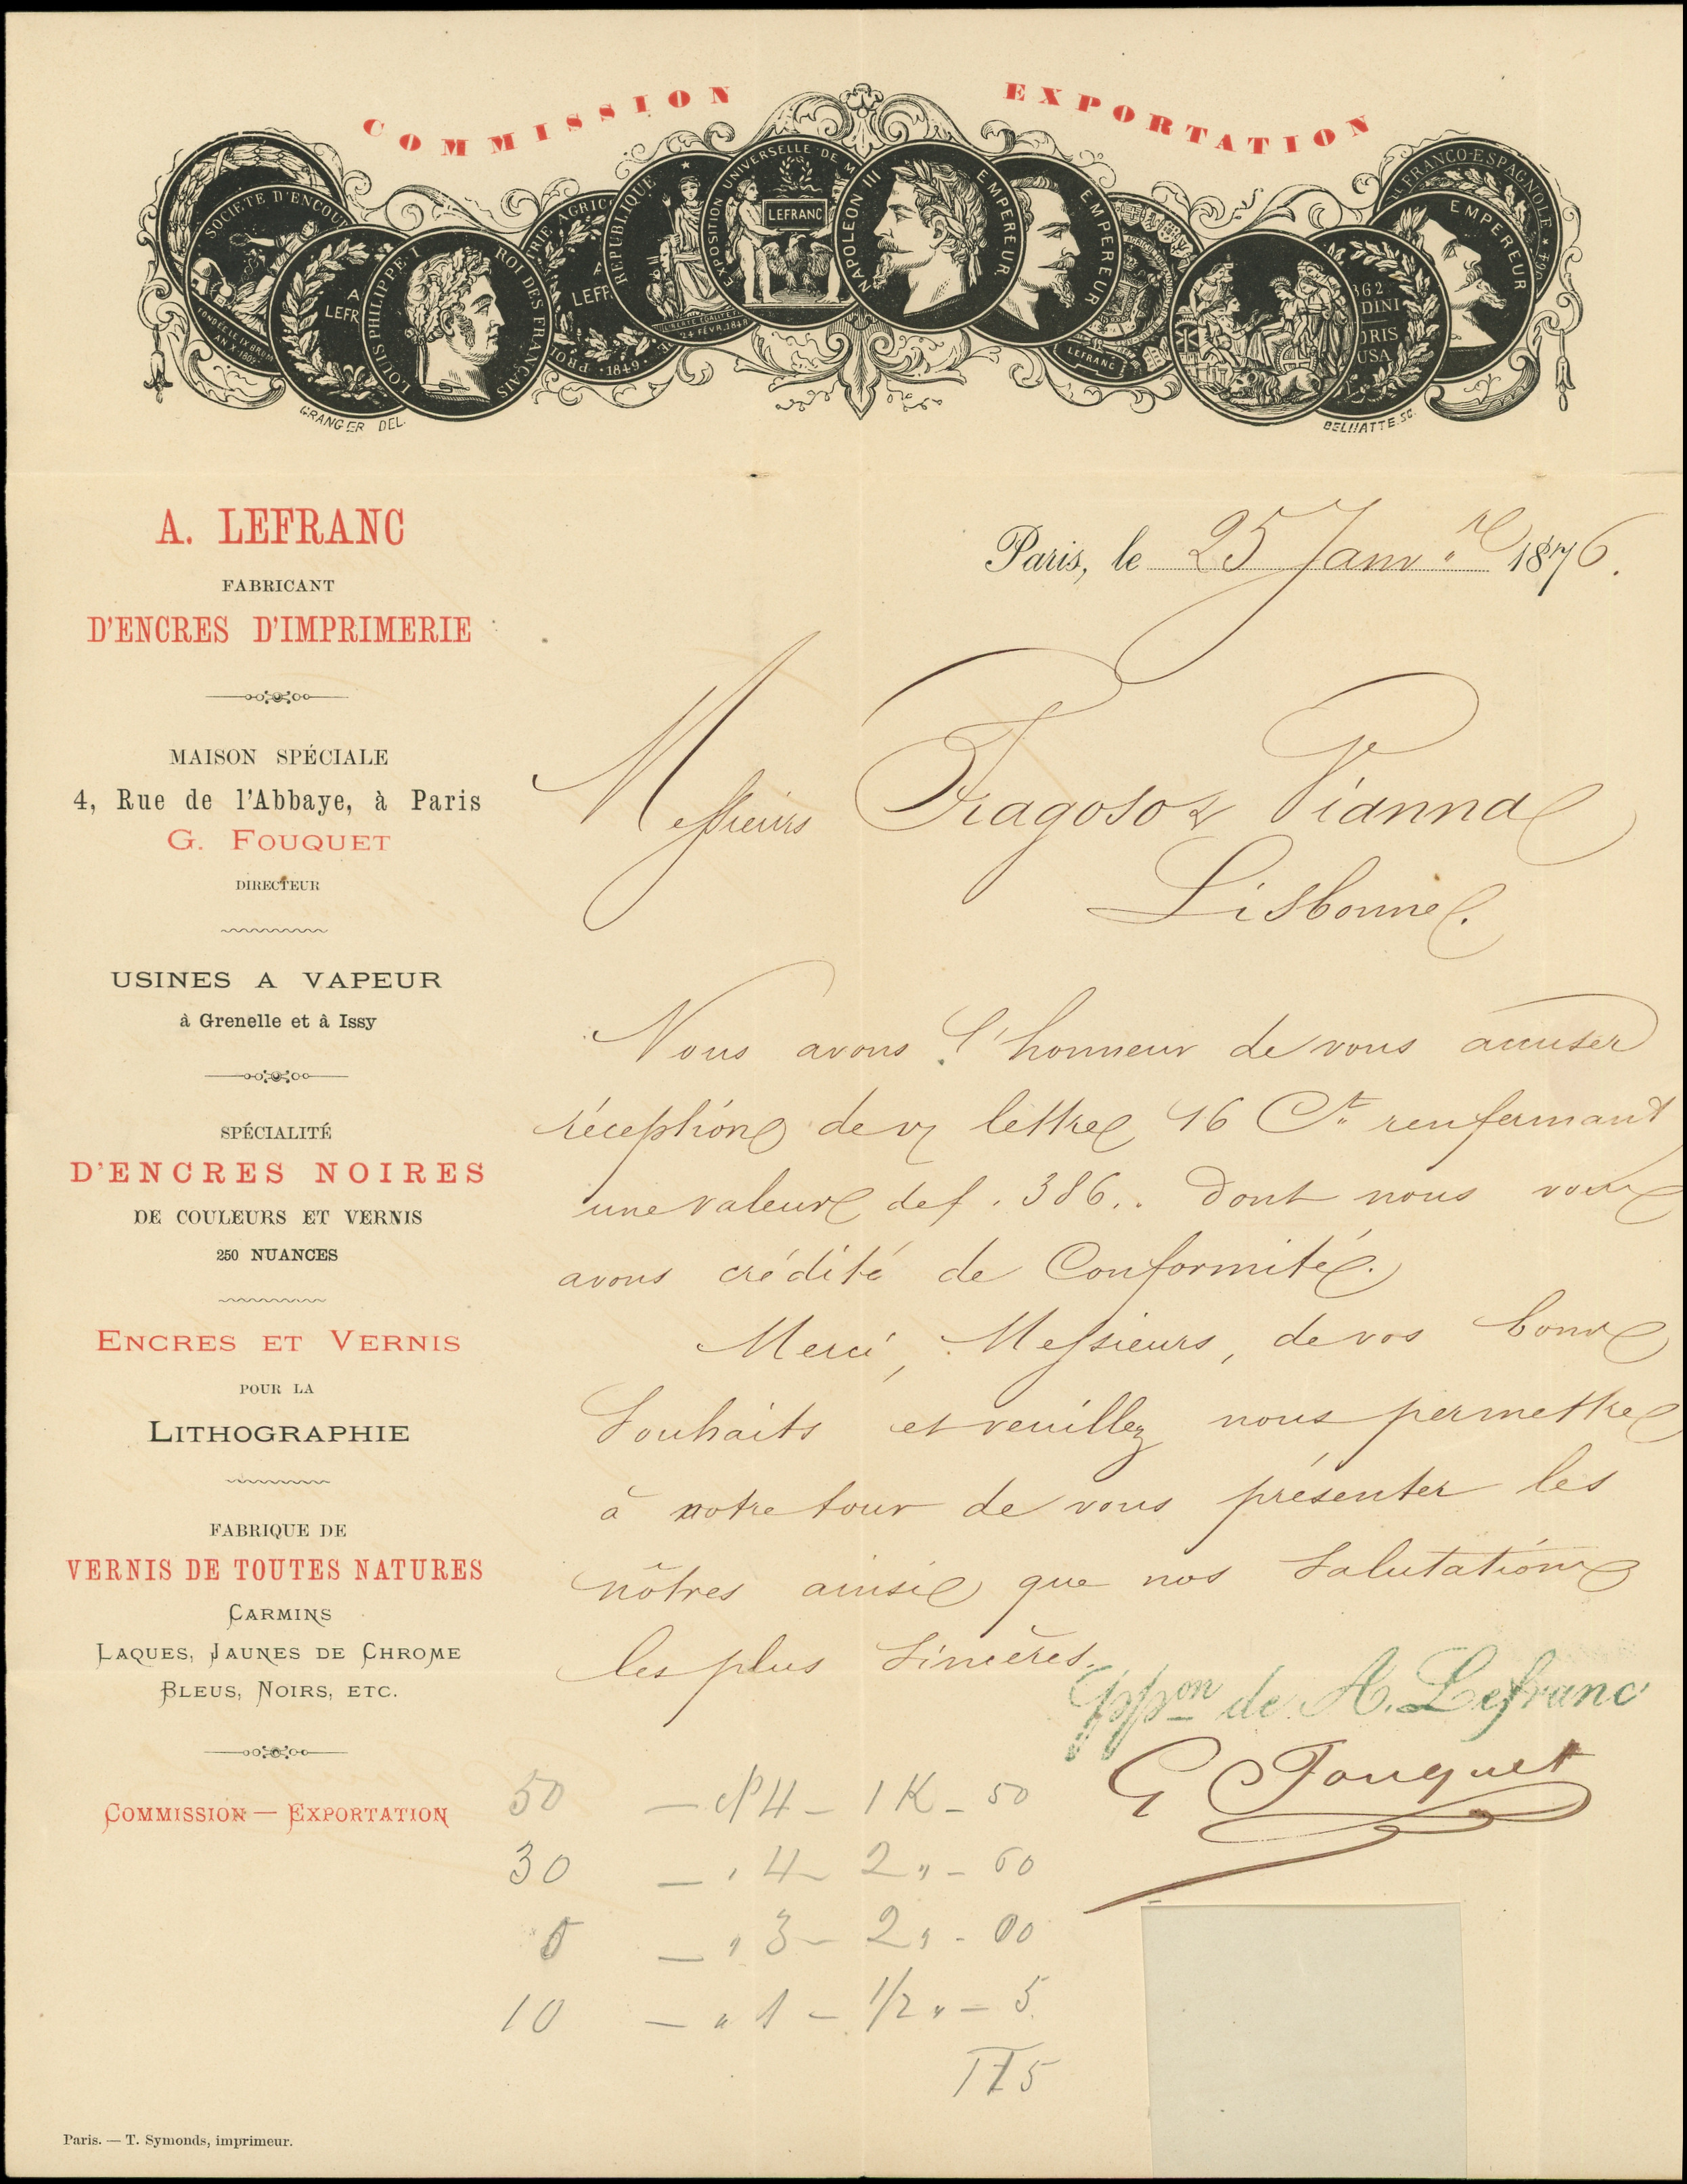 COMMISSION EXPORTATION
SOCIÉTÉ D'ENCOU
FONDÉE LE IX BRUM
AN X. 1802
A
LEFR
LOUIS PHILIPPE I ROI DES FRANÇAIS
RIE AGRIC
A
LEFR
PROI
1849
RÉPUBLIQUE
LIBERTÉ ÉGALITÉ F
24 FÉVR. 1848
EXPOSITION UNIVERSELLE DE M
LEFRANC
NAPOLEON III EMPEREUR
EMPEREUR
LEFRANC
862
DINI
ORIS
USA
EMPEREUR
FRANCO-ESPAGNOLE
GRANGER DEL.
BELHATTE. SC.
A. LEFRANC
FABRICANT
D'ENCRES D'IMPRIMERIE
MAISON SPÉCIALE
4, Rue de l'Abbaye, à Paris
G. FOUQUET
DIRECTEUR
USINES A VAPEUR
à Grenelle et à Issy
SPÉCIALITÉ
D'ENCRES NOIRES
DE COULEURS ET VERNIS
250 NUANCES
ENCRES ET VERNIS
POUR LA
LITHOGRAPHIE
FABRIQUE DE
VERNIS DE TOUTES NATURES
CARMINS
LAQUES, JAUNES DE CHROME
BLEUS, NOIRS, ETC.
COMMISSION — EXPORTATION
Paris, le 25 Janv.re 1876.
Messieurs Fragoso & Vianna
Lisbonne.
Nous avons l'honneur de vous accuser
réception de v/ lettre 16 Ct. renfermant
une valeur de f. 386.. dont nous vous
avons crédité de Conformité.
Merci, Messieurs, de vos bons
Souhaits et veuillez nous permettre
à notre tour de vous présenter les
nôtres ainsi que nos Salutations
les plus Sincères.
Pppon de A. Lefranc
G Fouquet
50 — No 4 — 1 K — 50
30 — " 4 — 2 " — 60
— " 3 — 2 " —
10 — " 1 — 1/2 " — 5
Paris. — T. Symonds, imprimeur.